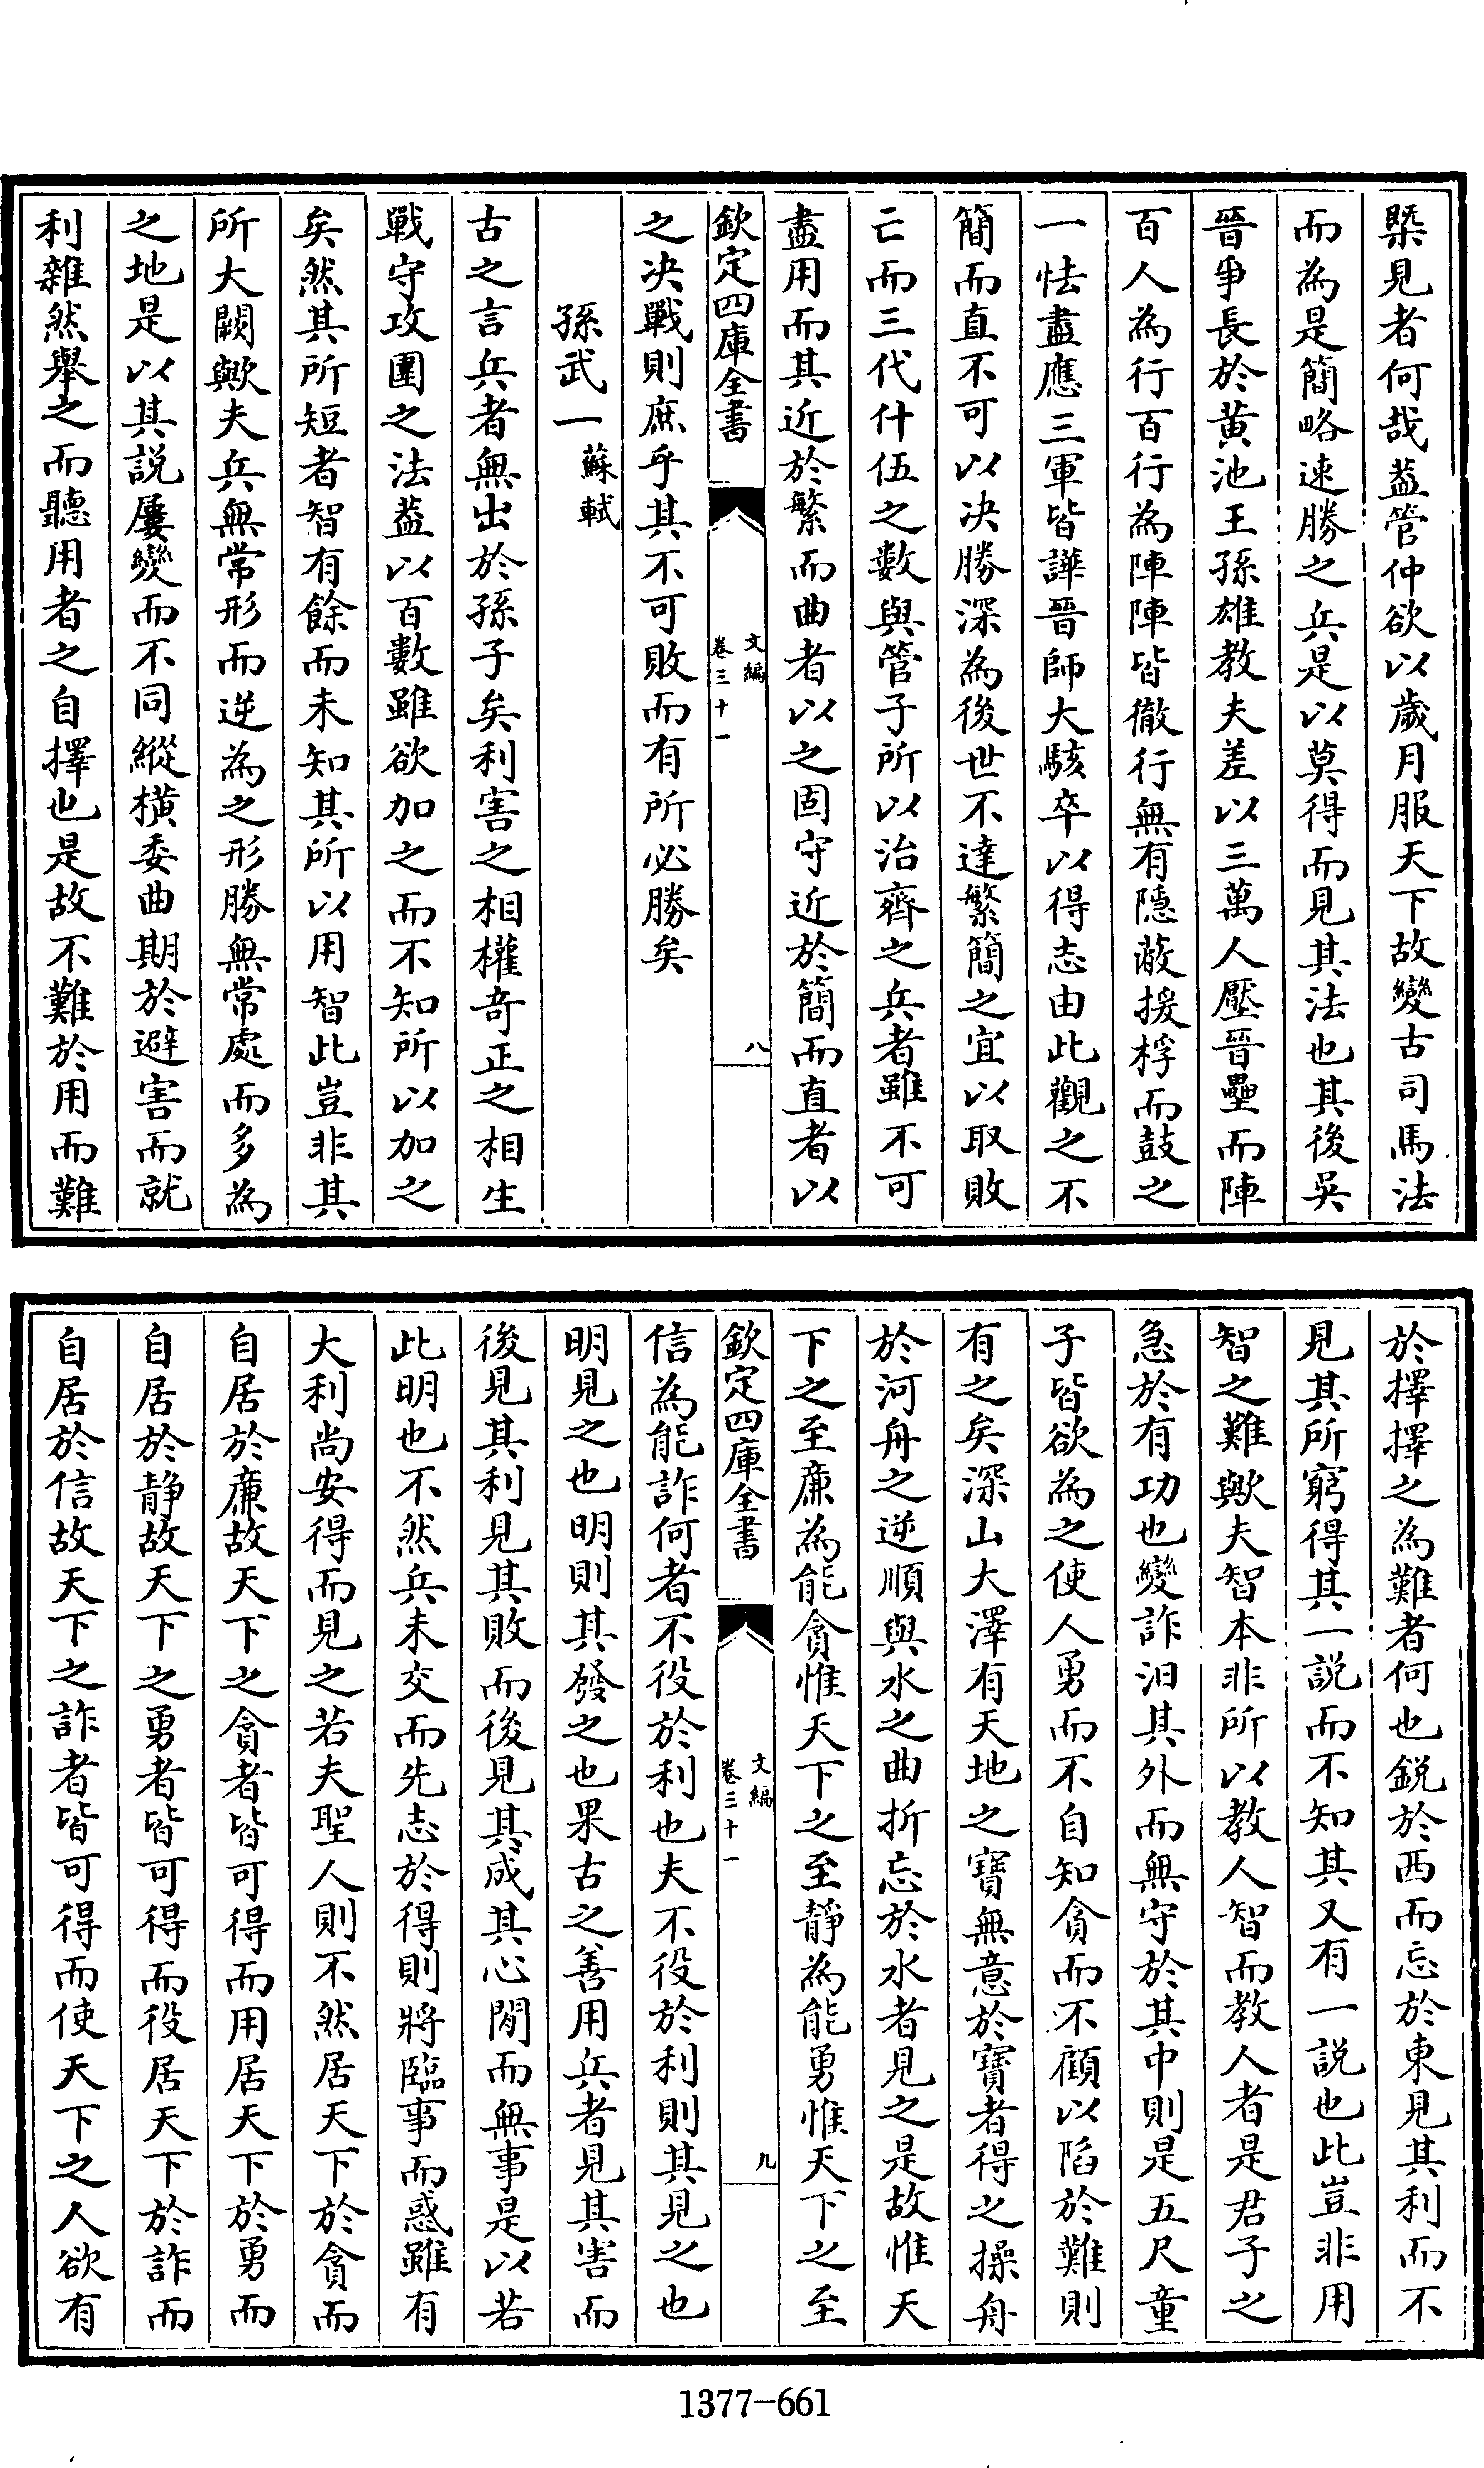 槩見者何哉葢管仲欲以歲月服天下故變古司馬法
而為是簡略速勝之兵是以莫得而見其法也其後吳
晉爭長於黃池王孫雄教夫差以三萬人壓晉壘而陣
百人為行百行為陣陣皆徹行無有隱蔽援桴而鼓之
一怯盡應三軍皆譁晉師大駭卒以得志由此觀之不
簡而直不可以決勝深為後世不達繁簡之宜以取敗
亡而三代什伍之數與管子所以治齊之兵者雖不可
盡用而其近於繁而曲者以之固守近於簡而直者以
欽定四庫全書
文編
卷三十一
八
之决戰則庶乎其不可敗而有所必勝矣
孫武一 蘇軾
古之言兵者無出於孫子矣利害之相權奇正之相生
戰守攻圍之法葢以百數雖欲加之而不知所以加之
矣然其所短者智有餘而未知其所以用智此豈非其
所大闕歟夫兵無常形而逆為之形勝無常處而多為
之地是以其說屢變而不同縱橫委曲期於避害而就
利雜然舉之而聽用者之自擇也是故不難於用而難
於擇擇之為難者何也鋭於西而忘於東見其利而不
見其所窮得其一說而不知其又有一說也此豈非用
智之難歟夫智本非所以教人智而教人者是君子之
急於有功也變詐汨其外而無守於其中則是五尺童
子皆欲為之使人勇而不自知貪而不顧以陷於難則
有之矣深山大澤有天地之寶無意於寶者得之操舟
於河舟之逆順與水之曲折忘於水者見之是故惟天
下之至廉為能貪惟天下之至靜為能勇惟天下之至
欽定四庫全書
文編
卷三十一
九
信為能詐何者不役於利也夫不役於利則其見之也
明見之也明則其發之也果古之善用兵者見其害而
後見其利見其敗而後見其成其心閒而無事是以若
此明也不然兵未交而先志於得則將臨事而惑雖有
大利尚安得而見之若夫聖人則不然居天下於貪而
自居於廉故天下之貪者皆可得而用居天下於勇而
自居於静故天下之勇者皆可得而役居天下於詐而
自居於信故天下之詐者皆可得而使天下之人欲有
1377-661